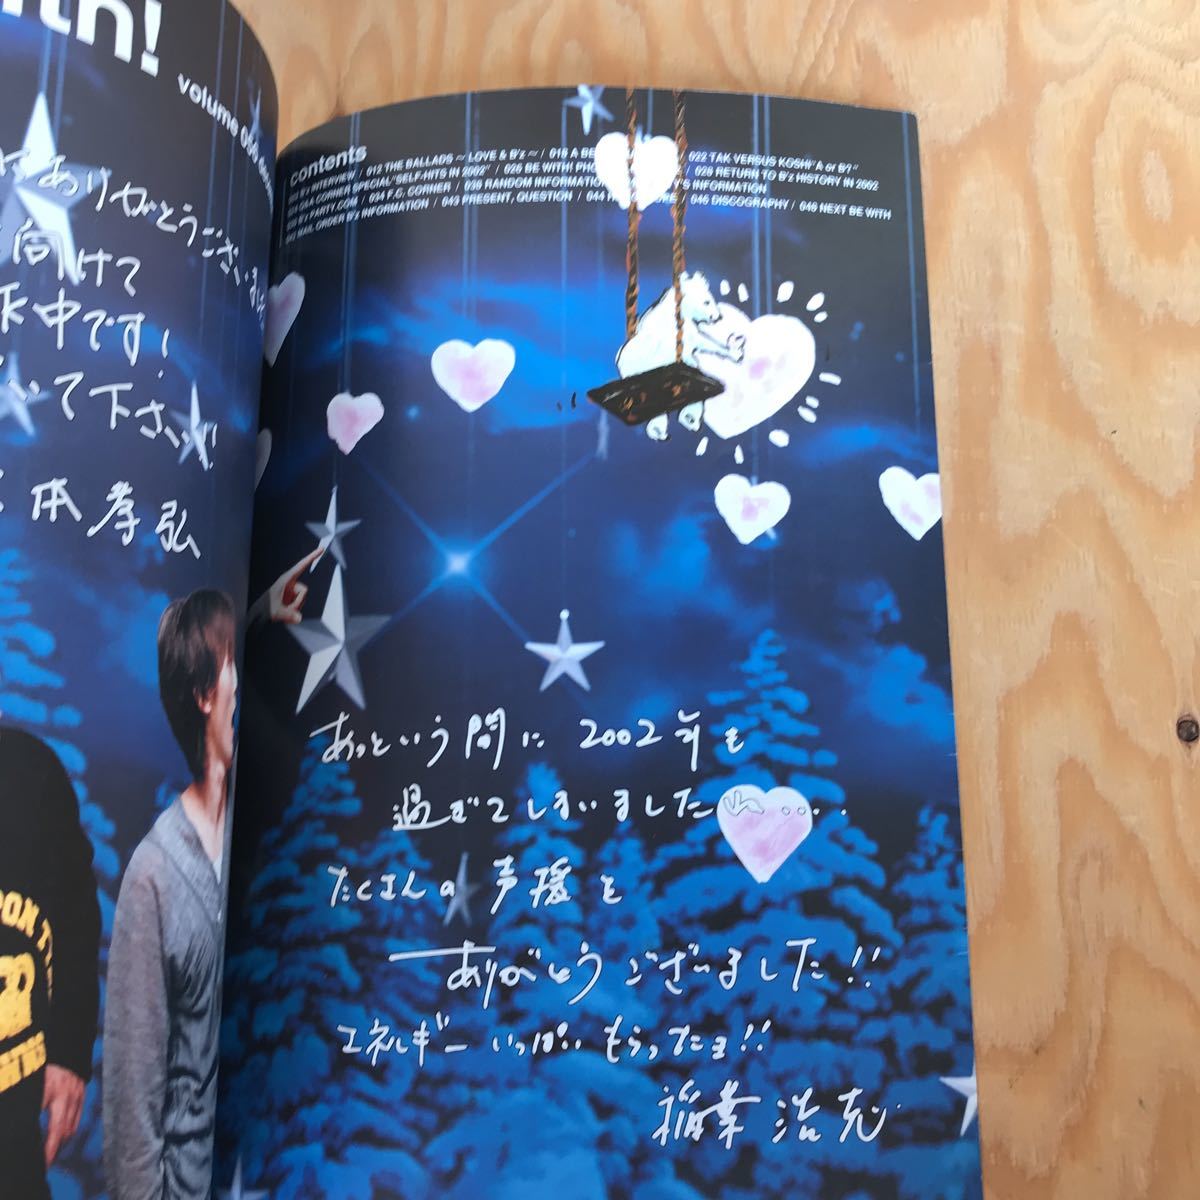 th!
volume 056
ありがとうございま
向けて
中です!
いて下さい!
本孝弘
contents
INTERVIEW / 012 THE BALLADS ~ LOVE & B'z ~ / 018 A BE 022 TAK VERSUS KOSHI "A or B?"
CORNER SPECIAL "SELF-HITS IN 2002" / 025 BE WITH! PHO 028 RETURN TO B'z HISTORY IN 2002
PARTY.COM / 034 F.C. CORNER / 038 RANDOM INFORMATION 'S INFORMATION
MAIL ORDER B'z INFORMATION / 043 PRESENT, QUESTION / 044 / 046 DISCOGRAPHY / 048 NEXT BE WITH
あっという間に 2002年も
過ぎてしまいました……
たくさんの声援を
ありがとうございました!!
エネルギーいっぱいもらったョ!!
稲葉浩志